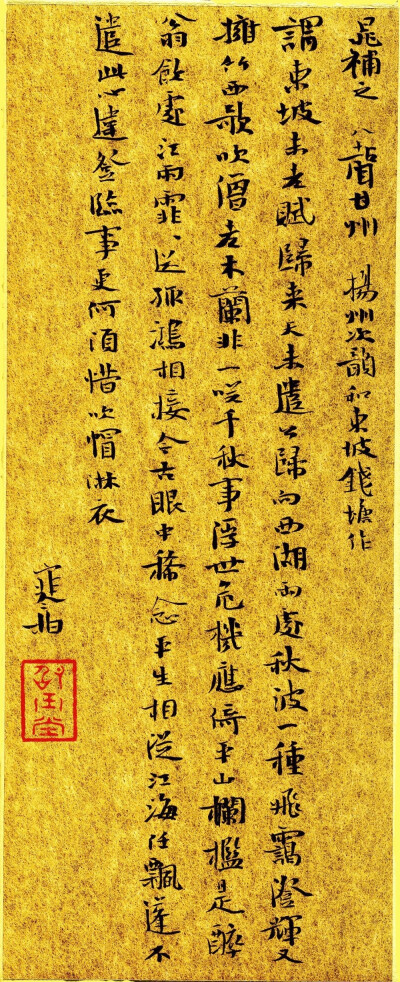 晁補之 八聲甘州 揚州次韻和東坡錢塘作
謂東坡未老賦歸来天未遣公歸向西湖兩處秋波一種飛靄澄輝又
擁竹西歌吹僧老木蘭非一咲千秋事浮世危機應倚平山欄檻是醉
翁飲處江雨霏、送孤鴻相接今古眼中稀念平生相從江海任飄蓬不
遣此心違登臨事更何須惜吹帽淋衣